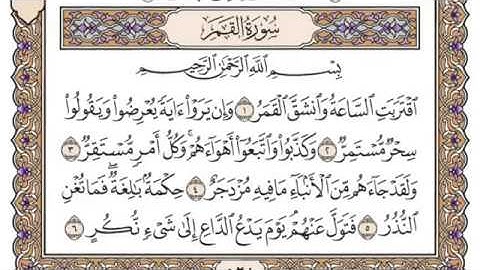 سُورَةُ القَمَرِ
بِسْمِ اللَّهِ الرَّحْمَٰنِ الرَّحِيمِ
اقْتَرَبَتِ السَّاعَةُ وَانشَقَّ الْقَمَرُ ۝١ وَإِن يَرَوْا۟ ءَايَةً يُعْرِضُوا۟ وَيَقُولُوا۟
سِحْرٌ مُّسْتَمِرٌّ ۝٢ وَكَذَّبُوا۟ وَاتَّبَعُوٓا۟ أَهْوَآءَهُمْ ۚ وَكُلُّ أَمْرٍ مُّسْتَقِرٌّ ۝٣
وَلَقَدْ جَآءَهُم مِّنَ الْأَنۢبَآءِ مَا فِيهِ مُزْدَجَرٌ ۝٤ حِكْمَةٌۢ بَٰلِغَةٌ ۖ فَمَا تُغْنِ
النُّذُرُ ۝٥ فَتَوَلَّ عَنْهُمْ ۘ يَوْمَ يَدْعُ الدَّاعِ إِلَىٰ شَىْءٍ نُّكُرٍ ۝٦